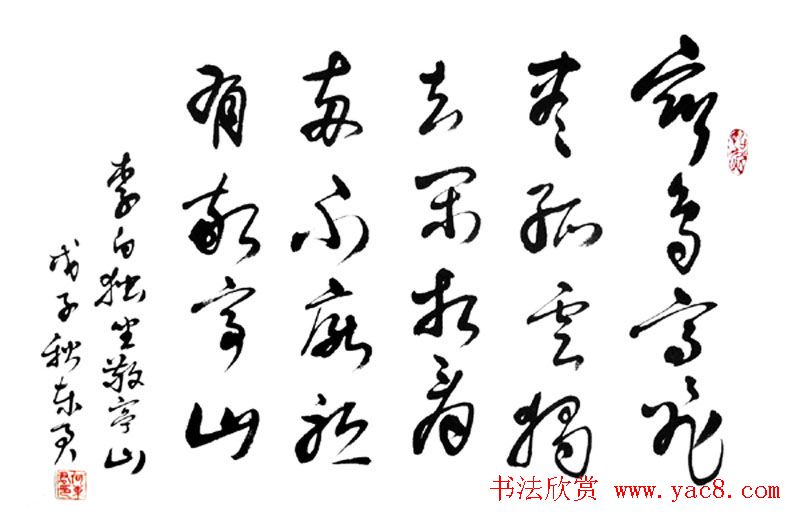 眾鸟高飛
盡孤雲獨
去閑相看
两不厭祇
有敬亭山
李白独坐敬亭山
戊子秋东
书法欣赏 www.yac8.com